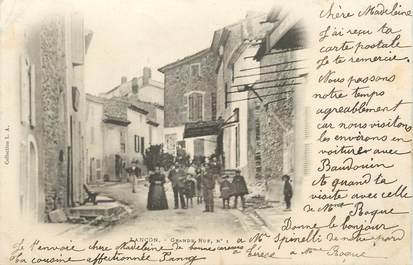 Chère Madeleine
J'ai reçu ta
carte postale
Je te remercie
Nous passons
notre temps
agréablement
car nous visitons
les environs en
voiture avec
Baudouin
A quand ta
visite avec celle de
Mme Roque
Donne le bonjour
à Mr Spinelli de notre part
à Mme Roque
Je t'envoie chère Madeleine de bonnes caresses
ta cousine affectionnée
LANÇON. — GRANDE RUE, N° 1
Collection L. A.